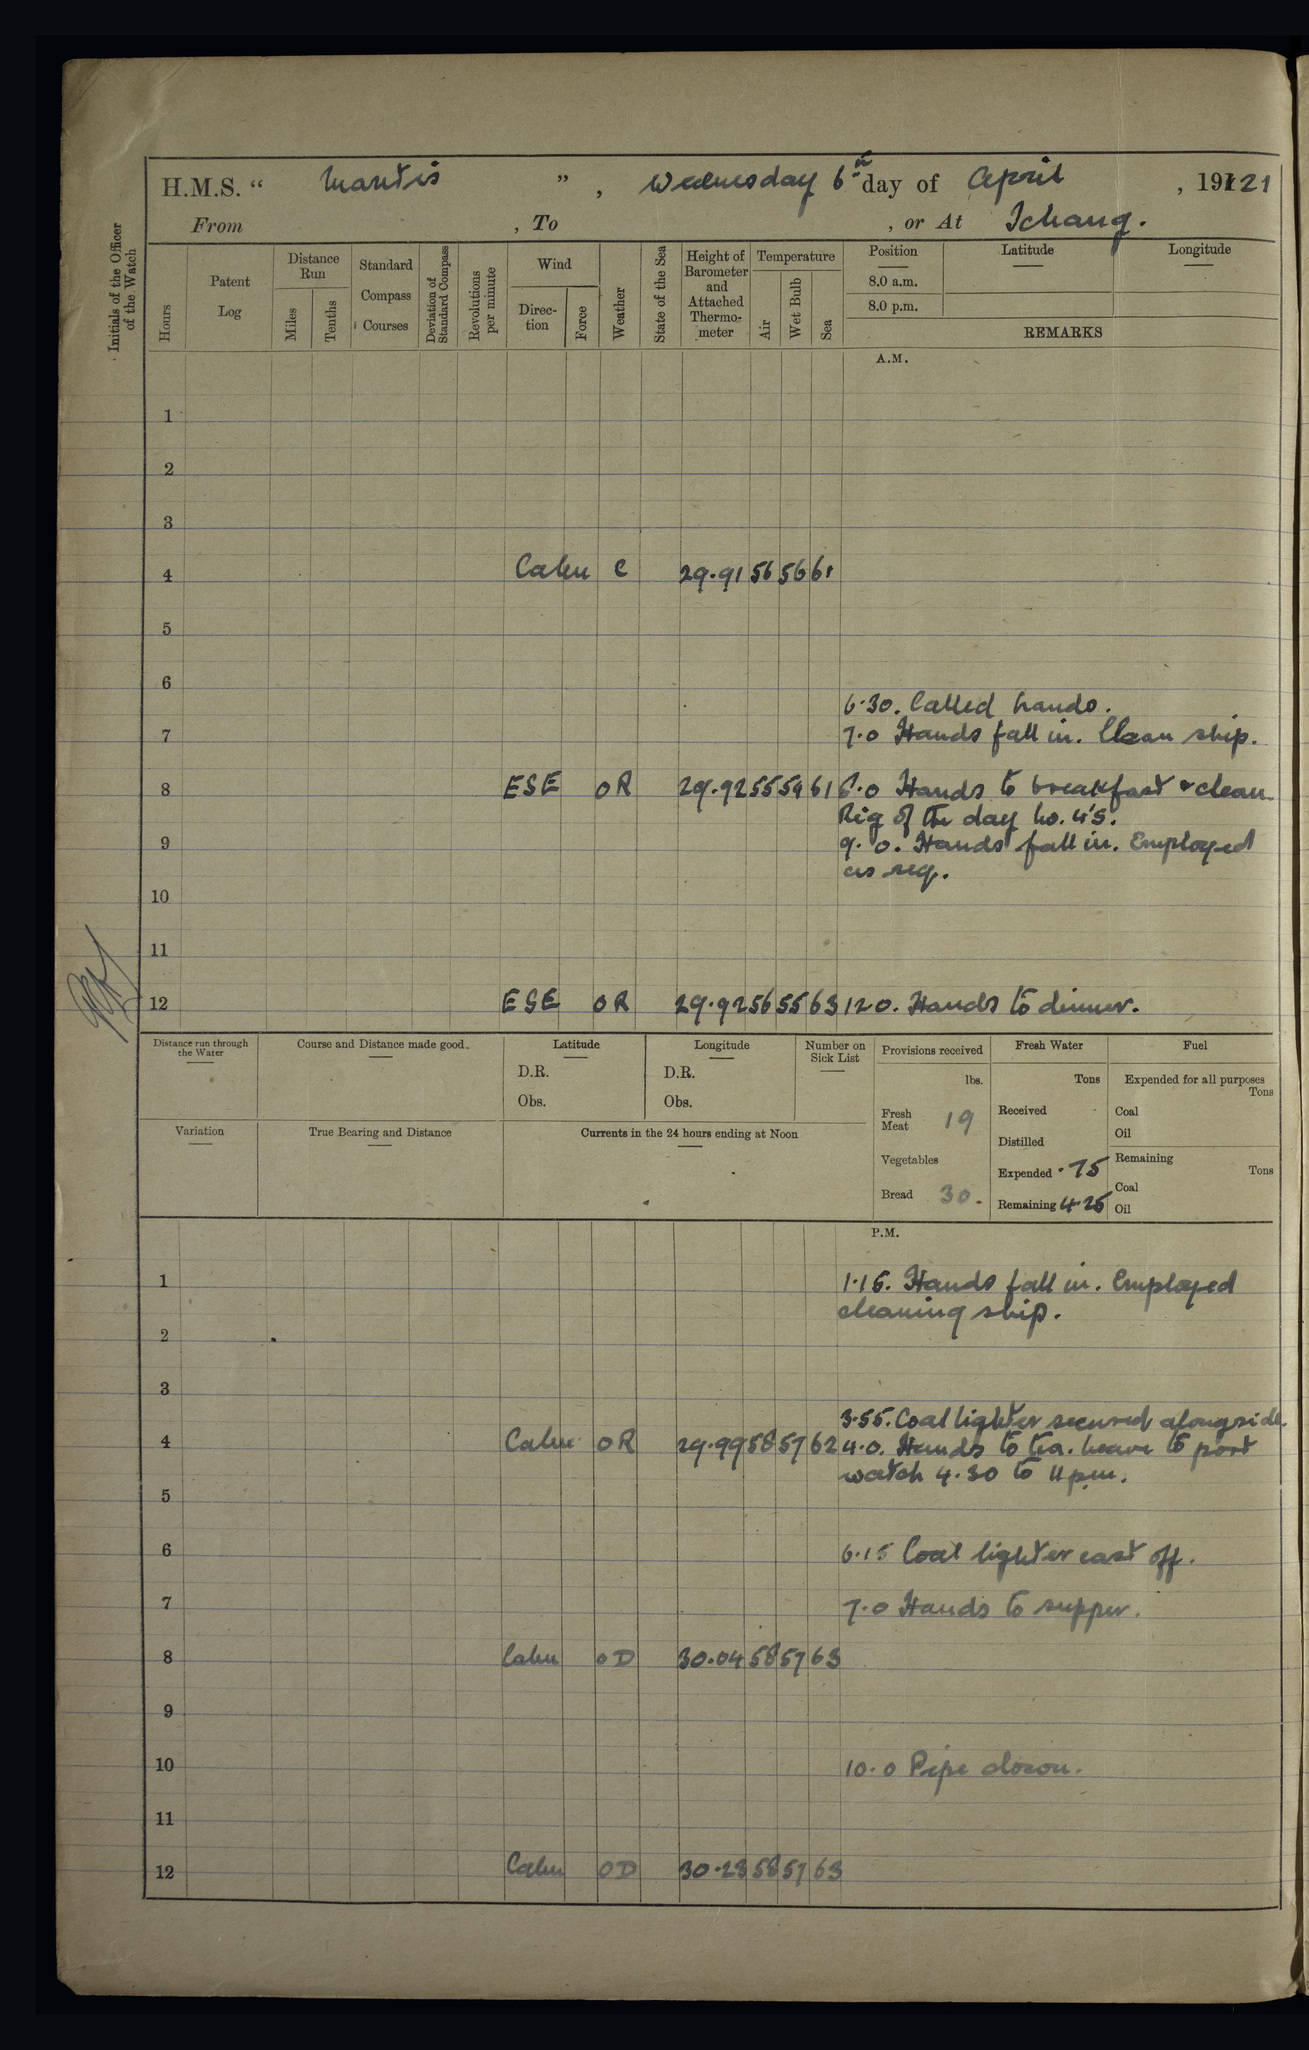 H.M.S. “ Mantis ” , Wednesday 6th day of April , 1921
From , To , or At Ichang.
Initials of the Officer of the Watch
Hours
Patent Log
Distance Run
Miles
Tenths
Standard Compass Courses
Deviation of Standard Compass
Revolutions per minute
Wind
Direction
Force
Weather
State of the Sea
Height of Barometer and Attached Thermometer
Temperature
Air
Wet Bulb
Sea
Position
8.0 a.m.
8.0 p.m.
Latitude
Longitude
REMARKS
A.M.
1
2
3
4 Calm C 29.91 56 56 61
5
6
6.30. Called hands.
7 7.0 Hands fall in. Clean ship.
8 ESE OR 29.92 55 54 61 8.0 Hands to breakfast & clean
Rig of the day No. 4's.
9 9.0. Hands fall in. Employed
as req.
10
11
12 ESE OR 29.92 56 55 63 12 0. Hands to dinner.
Distance run through the Water
Course and Distance made good
Latitude
D.R.
Obs.
Longitude
D.R.
Obs.
Number on Sick List
Provisions received
lbs.
Fresh Meat 19
Vegetables
Bread 30.
Fresh Water
Tons
Received
Distilled
Expended .75
Remaining 4.25
Fuel
Expended for all purposes
Tons
Coal
Oil
Remaining
Tons
Coal
Oil
Variation
True Bearing and Distance
Currents in the 24 hours ending at Noon
P.M.
1 1.15. Hands fall in. Employed
cleaning ship.
2
3
3.55. Coal lighter secured alongside.
4 Calm OR 29.99 58 57 62 4.0. Hands to tea. Leave to port
watch 4.30 to 11pm.
5
6 6.15 Coal lighter cast off.
7 7.0 Hands to supper.
8 Calm OD 30.04 58 57 63
9
10 10.0 Pipe down.
11
12 Calm OD 30.23 58 57 63